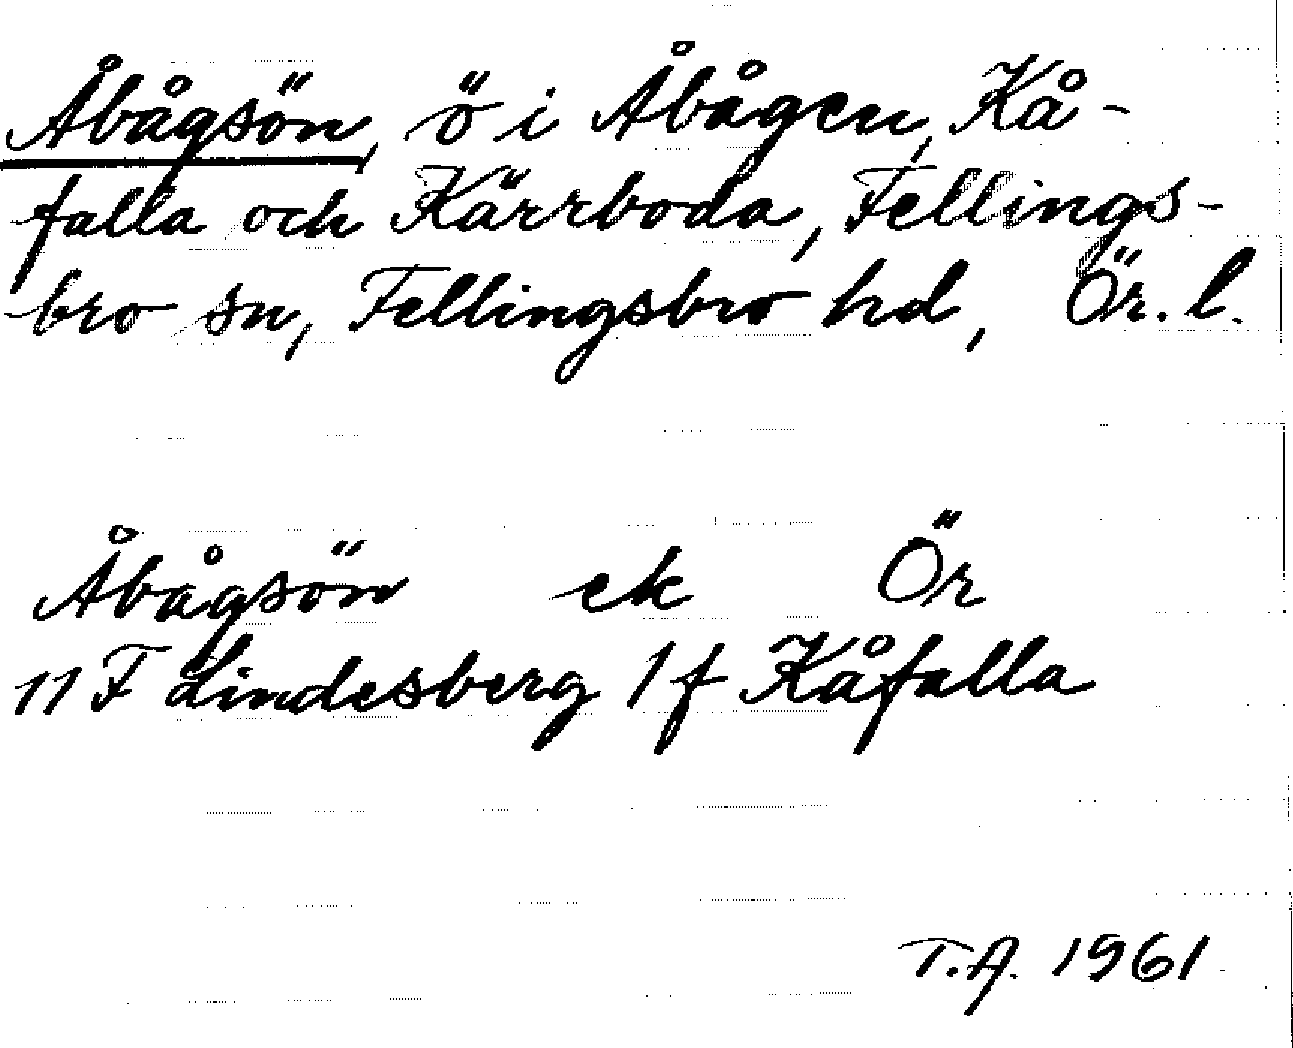 Åbågsön, ö i Åbågen, Kå-
falla och Kärrboda, Fellings-
bro sn, Fellingsbro hd, Ör. l.
Åbågsön ek Ör
11 F Lindesberg 1 f Kåfalla
T.A. 1961